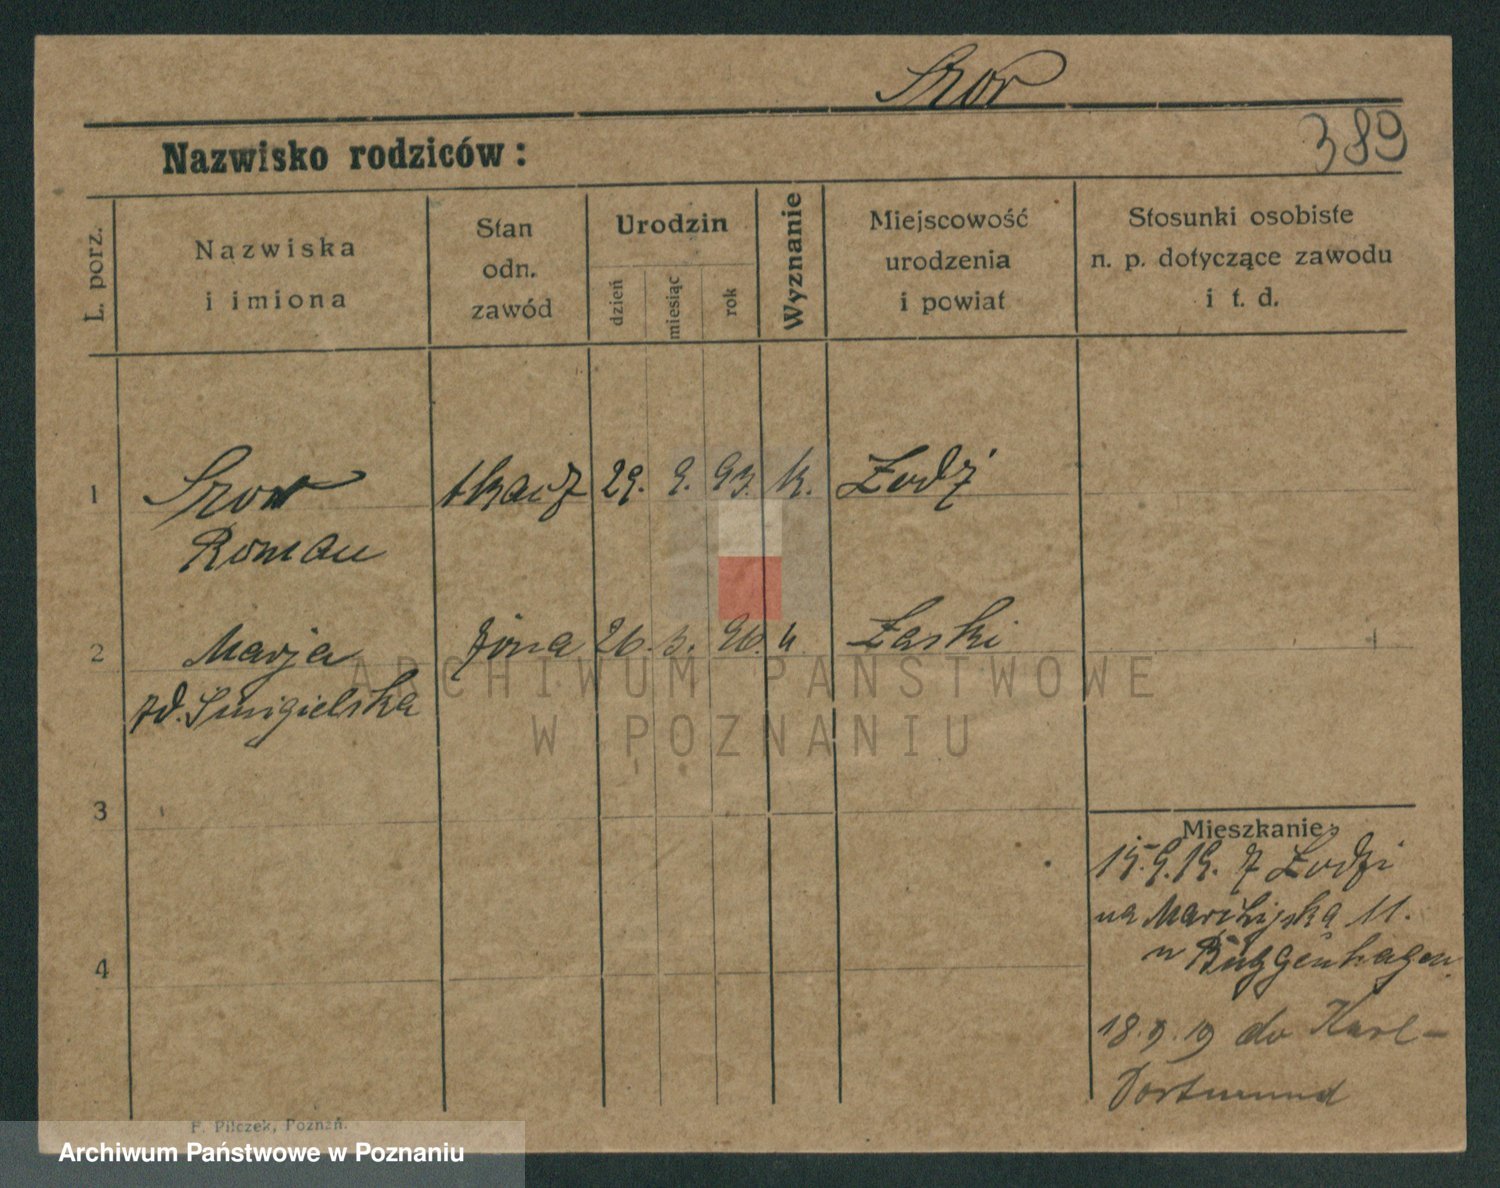 Szor
389
Nazwisko rodziców:
L. porz.
Nazwiska
i imiona
Stan
odn.
zawód
Urodzin
dzień
miesiąc
rok
Wyznanie
Miejscowość
urodzenia
i powiat
Stosunki osobiste
n. p. dotyczące zawodu
i t. d.
1 Szor tkacz 29. 9. 93. k. Łodź
Roman
2 Marja żona 26. 3. 96. k. Łaski
zd. Smigielska
ARCHIWUM PAŃSTWOWE
W POZNANIU
3
Mieszkanie:
15.9.19. z Łodzi
na 11.
w
4
18.9.19 do Karl-
Dortmund
F. Pilczek, Poznań.
Archiwum Państwowe w Poznaniu